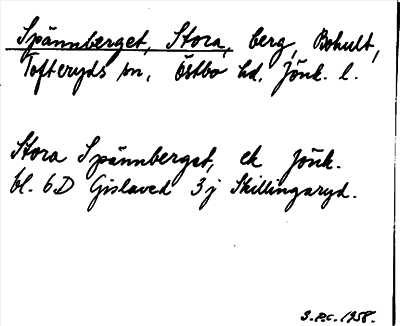 Spännberget, Stora, berg, Bohult,
Tofteryds sn, Östbo hd, Jönk. l.
Stora Spännberget, ek Jönk.
bl. 6D Gislaved 3j Skillingaryd.
1958.